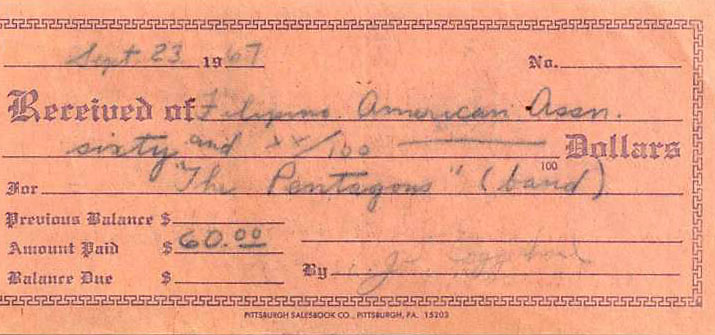 Sept 23 1967 No.
Received of Filipino American Assn.
sixty and xx/100 Dollars
For "The Pentagons" (band) 100
Previous Balance $
Amount Paid $ 60.00
Balance Due $ By
PITTSBURGH SALESBOOK CO., PITTSBURGH, PA. 15203